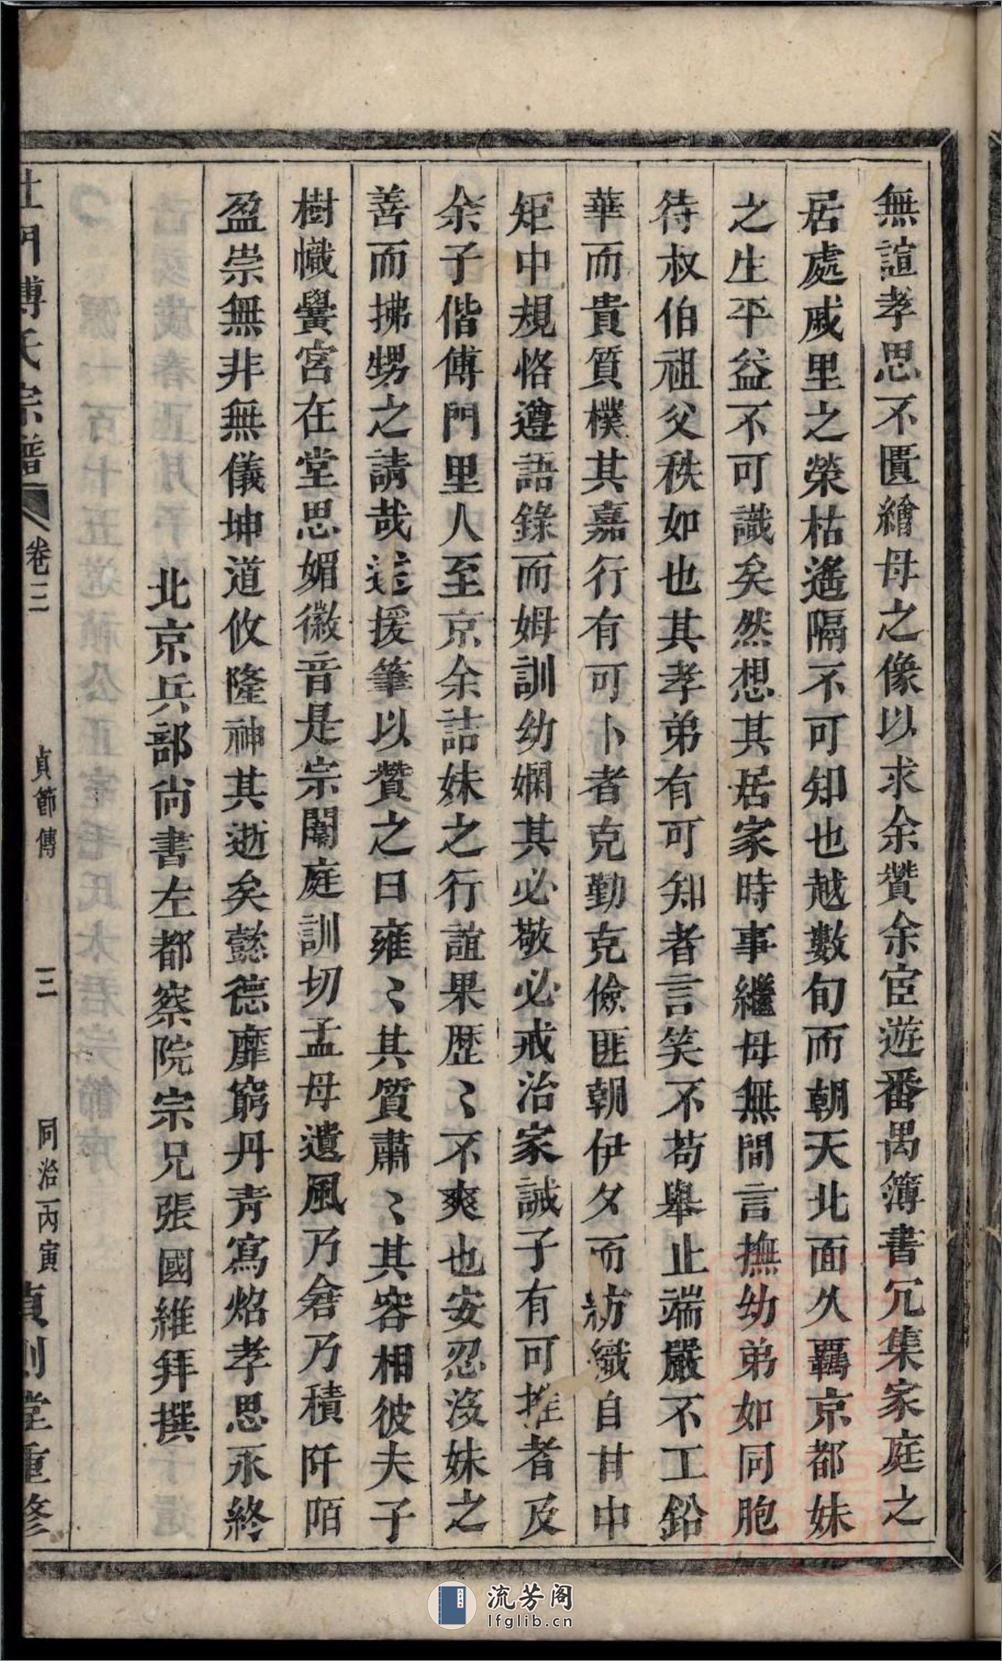 無諠孝思不匱繪母之像以求余贊余宦遊番禺簿書冗集家庭之
居處戚里之榮枯遙隔不可知也越數旬而朝天北面久覊京都妹
之生平益不可識矣然想其居家時事繼母無間言撫幼弟如同胞
待叔伯祖父秩如也其孝弟有可知者言笑不苟舉止端嚴不工鉛
華而貴質樸其嘉行有可卜者克勤克儉匪朝伊夕而紡織自甘中
矩中規恪遵語錄而姆訓幼嫻其必敬必戒治家誡子有可推者及
余子偕傅門里人至京余詰妹之行誼果歷〻不爽也安忍沒妹之
善而拂甥之請哉遂援筆以贊之曰雍〻其質肅〻其容相彼夫子
樹幟黌宮在堂思媚徽音是宗闈庭訓切孟母遺風乃畬乃積阡陌
盈崇無非無儀坤道攸隆神其逝矣懿德靡窮丹青寫炤孝思永終
北京兵部尚書左都察院宗兄張國維拜撰
杜門傅氏宗譜 卷三 貞節傳 三 同治丙寅 貞則堂重修
流芳阁
lfglib.cn